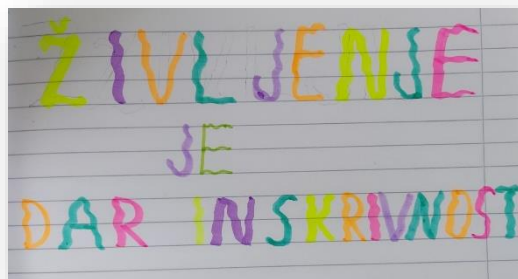 ŽIVLJENJE
JE
DAR IN SKRIVNOST